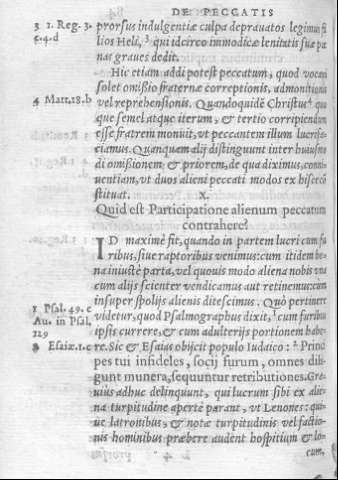 DE PECCATIS
3 1. Reg. 3. prorsus indulgentiæ culpa deprauatos legimus fi
c. 4. d lios Heli, ³ qui idcirco immodicæ lenitatis suæ pœ
nas graues dedit.
Hic etiam addi potest peccatum, quod vocari
solet omissio fraternæ correptionis, admonitionis
4 Matt. 18. b vel reprehensionis. Quandoquidē Christus ⁴ quo
que semel atque iterum, & tertio corripiendum
esse fratrem monuit, vt peccantem illum lucrifa-
ciamus. Quanquam alij distinguunt inter huiusmo
di omissionem, & priorem, de qua diximus, conni-
uentiam, vt duos alieni peccati modos ex his cō
stituat.
X.
Quid est Participatione alienum peccatum
contrahere?
ID maximè fit, quando in partem lucri cum fu
ribus, siue raptoribus venimus: cum itidem bo-
na iniustè parta, vel quouis modo aliena nobis vnà
cum alijs scienter vendicamus aut retinemus: cum
insuper spolijs alienis ditescimus. Quò pertinere
1 Psal. 49. c videtur, quod Psalmographus dixit, ¹ cum furibus
Au. in Psal. ipsos currere, & cum adulteris portionem habe-
129
2 Esaiæ. 1. e re. Sic & Esaias obijcit populo Iudaico: ² Princi
pes tui infideles, socij furum, omnes dili-
gunt munera, sequuntur retributiones. Gra-
uiùs adhuc delinquunt, qui lucrum sibi ex alie-
na turpitudine apertè parant, vt Lenones: qui-
ue latronibus, & notæ turpitudinis vel factio-
nis hominibus præbere audent hospitium & lo-
cum,